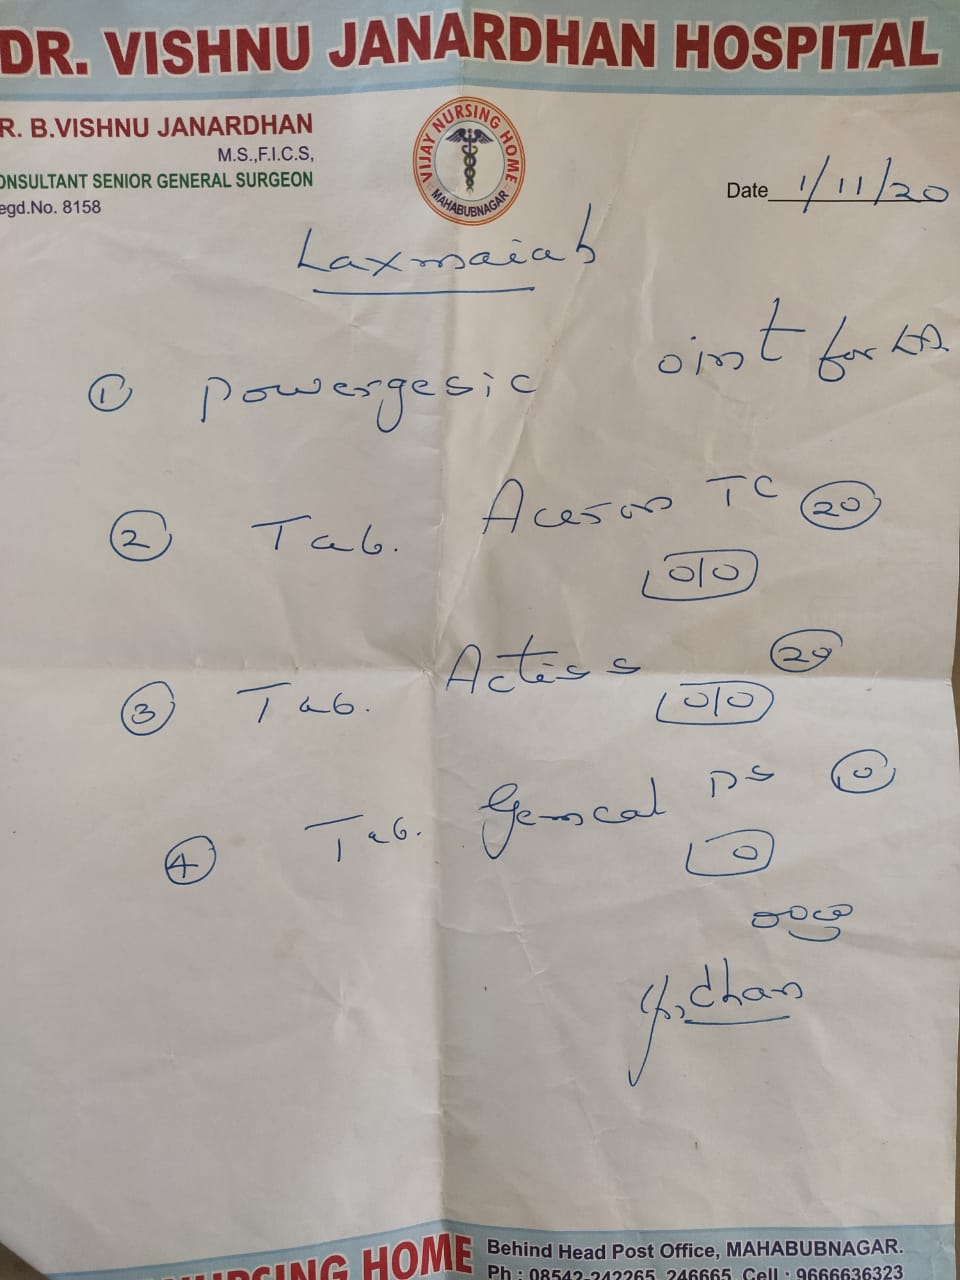 DR. VISHNU JANARDHAN HOSPITAL
R. B.VISHNU JANARDHAN
M.S.,F.I.C.S,
ONSULTANT SENIOR GENERAL SURGEON
egd.No. 8158
VIJAY NURSING HOME
MAHABUBNAGAR
Date 1/11/20
Laxmaiah
① Powergesic oint for
② Tab. TC 20
0/0
③ Tab. 20
0/0
④ Tab. Gemcal DS 10
0
NURSING HOME
Behind Head Post Office, MAHABUBNAGAR.
Ph : 08542-242265, 246665, Cell : 9666636323